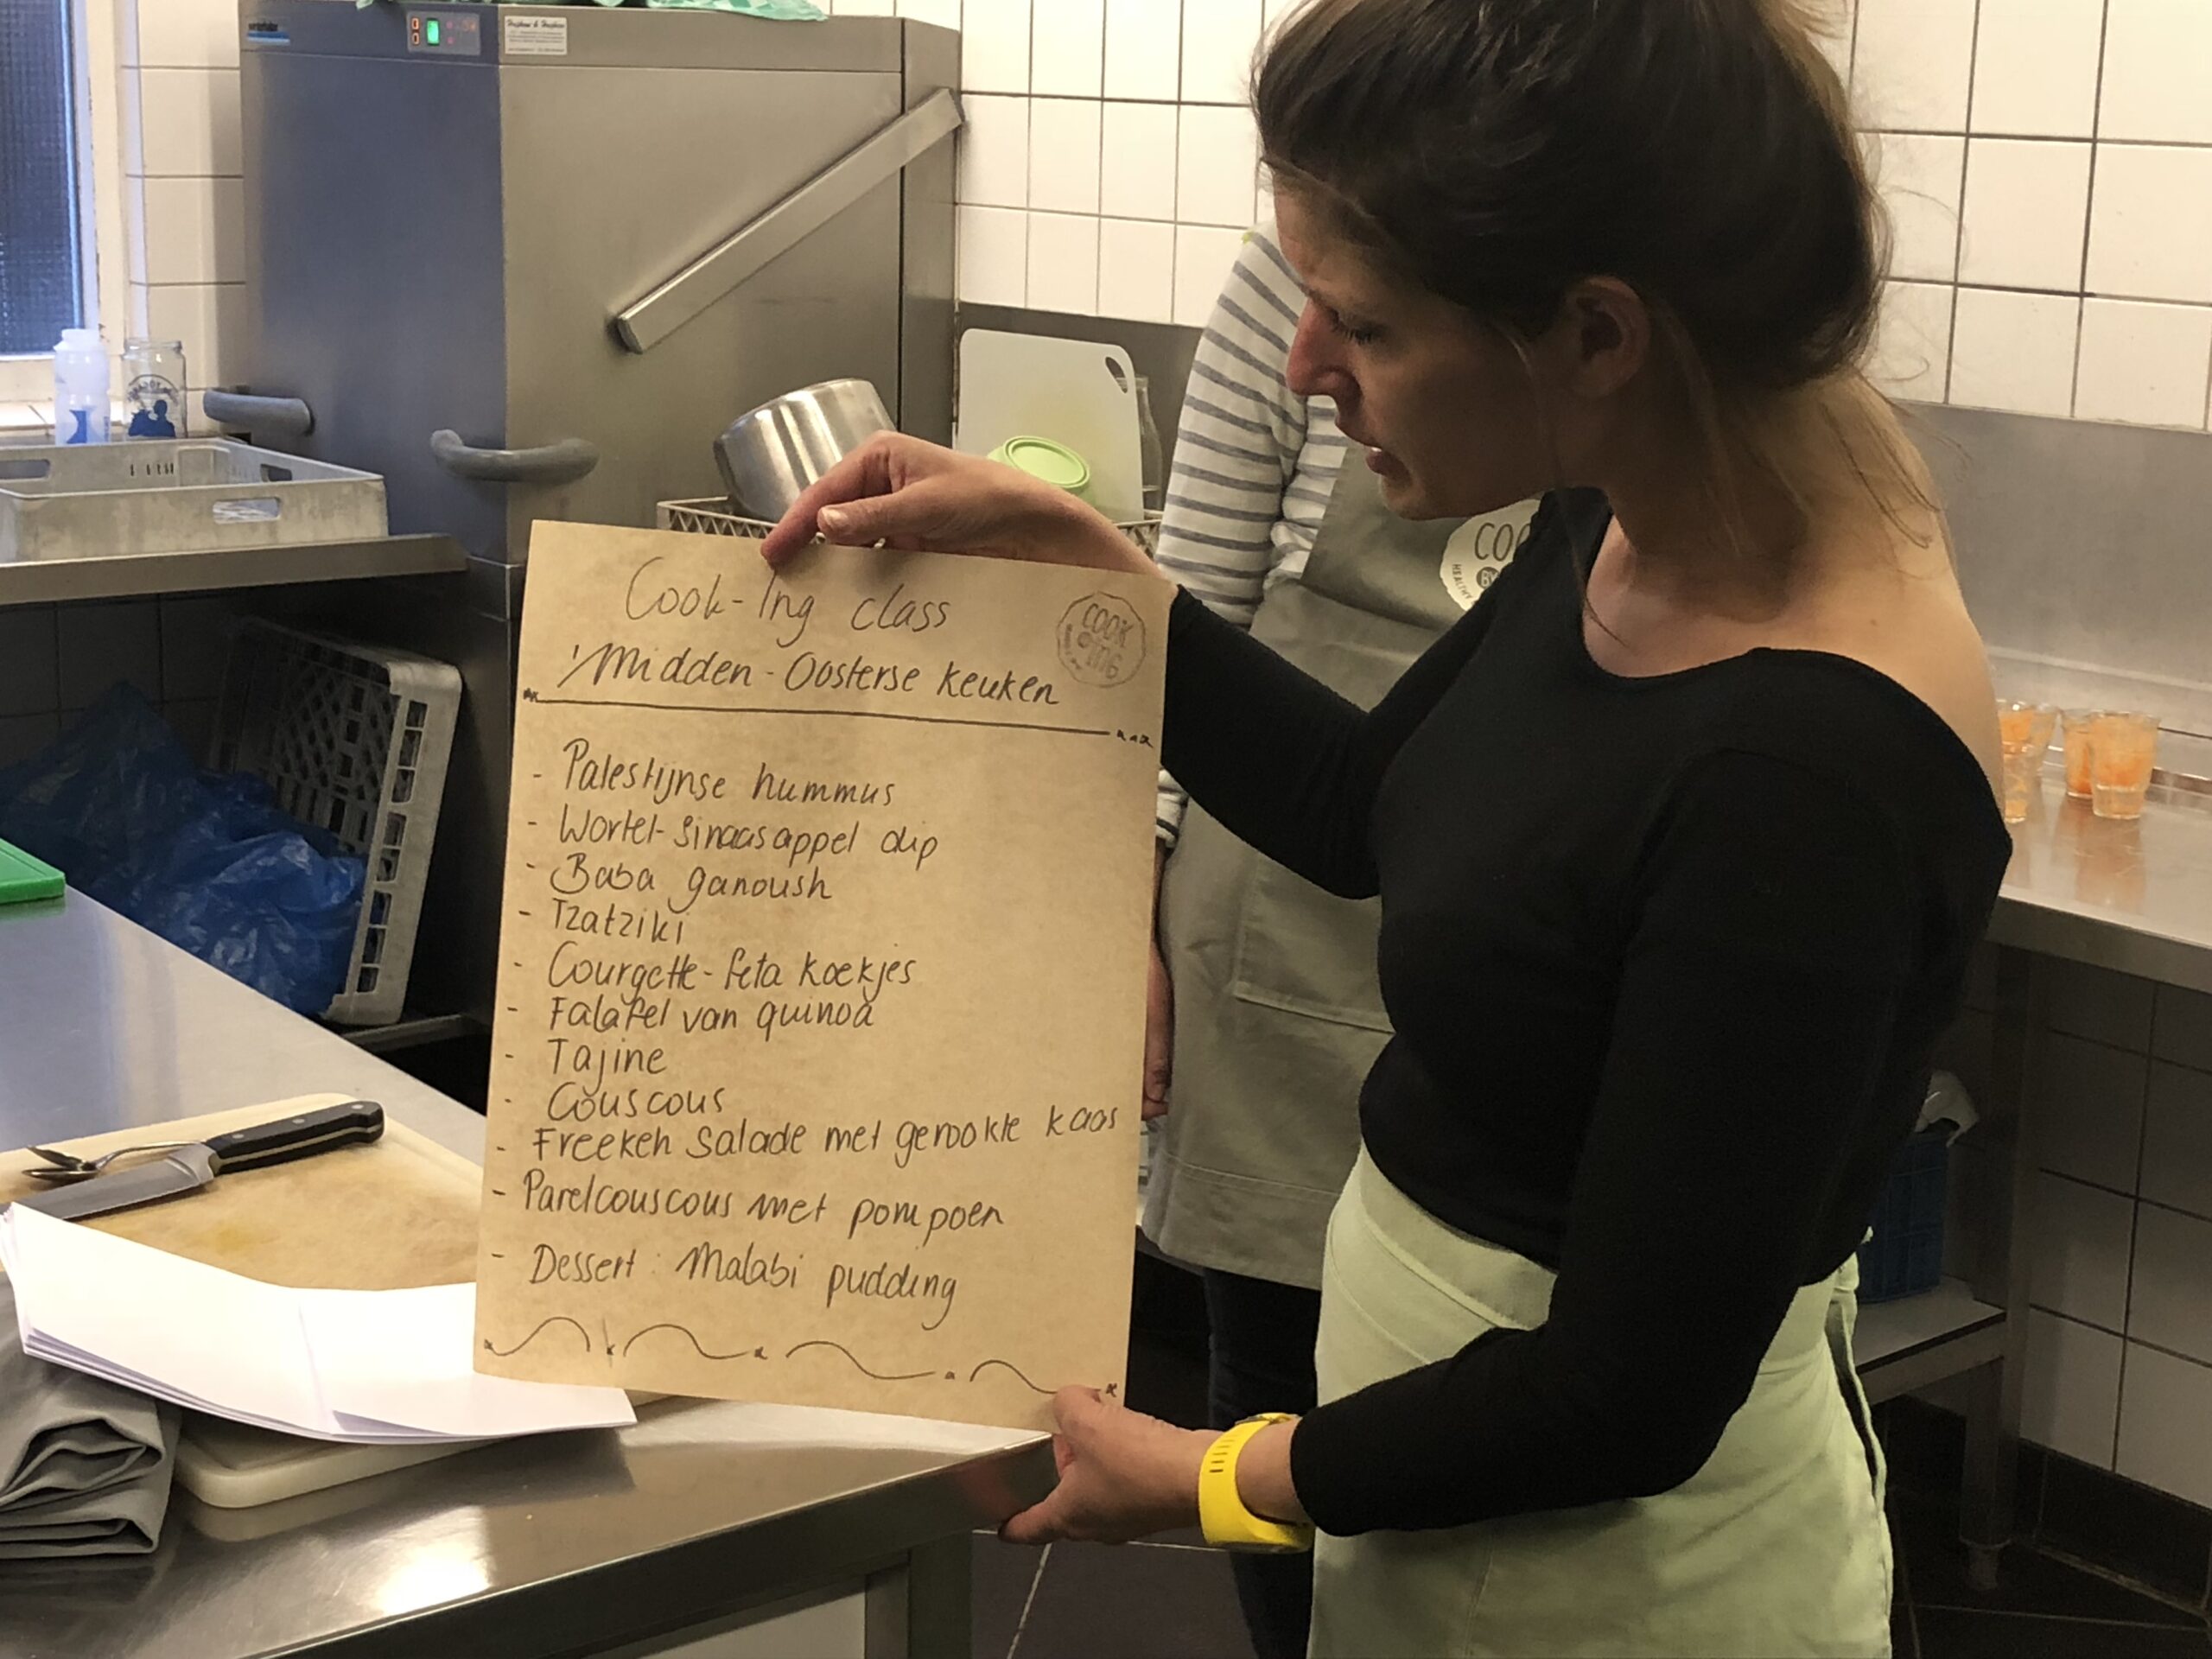 Cook-Ing class
'Midden-Oosterse keuken
COOK
ING
- Palestijnse hummus
- Wortel-Sinaasappel dip
- Baba ganoush
- Tzatziki
- Courgette-feta koekjes
- Falafel van quinoa
- Tajine
- Couscous
- Freekeh Salade met gerookte kaas
- Parelcouscous met pompoen
- Dessert: Malabi pudding
COO
BY
HEALTHY